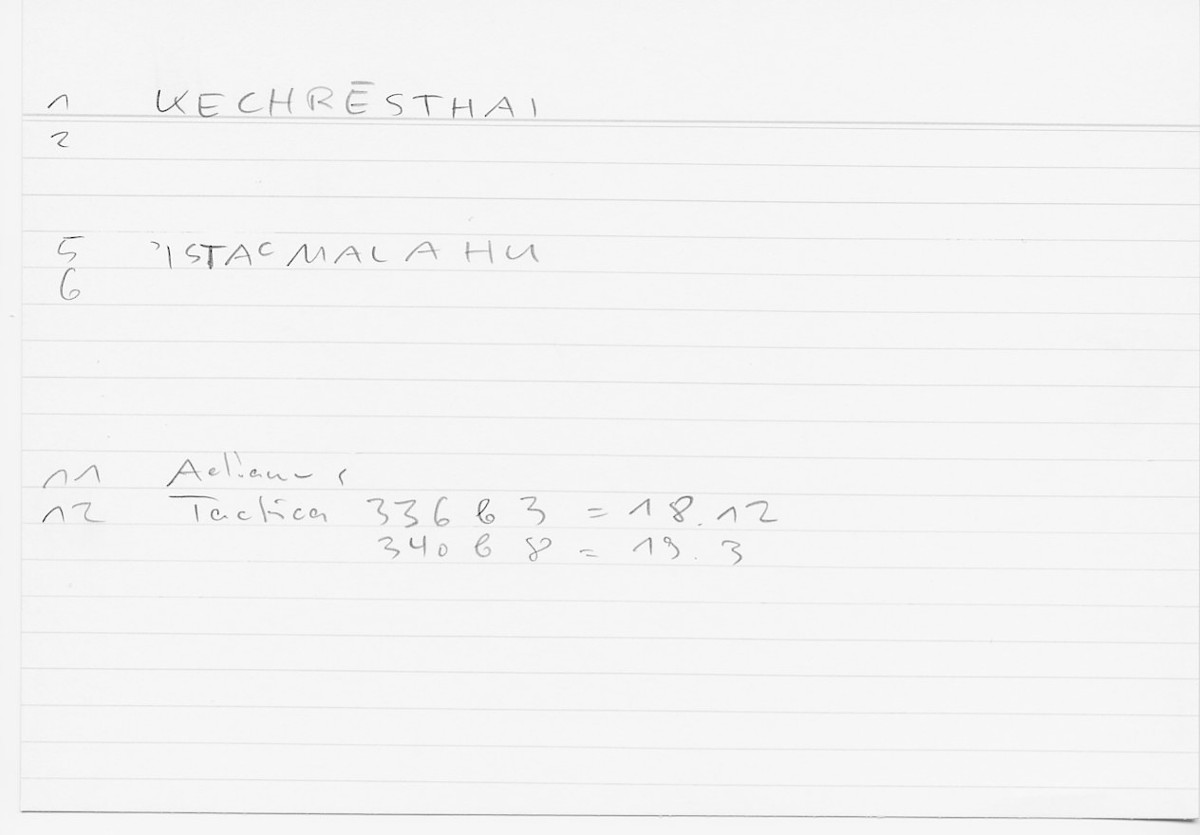 1 KECHRĒSTHAI
2
5 ʾISTAcMALAHU
6
11 Aelianus
12 Tactica 336 b 3 = 18.12
340 b 8 = 19.3